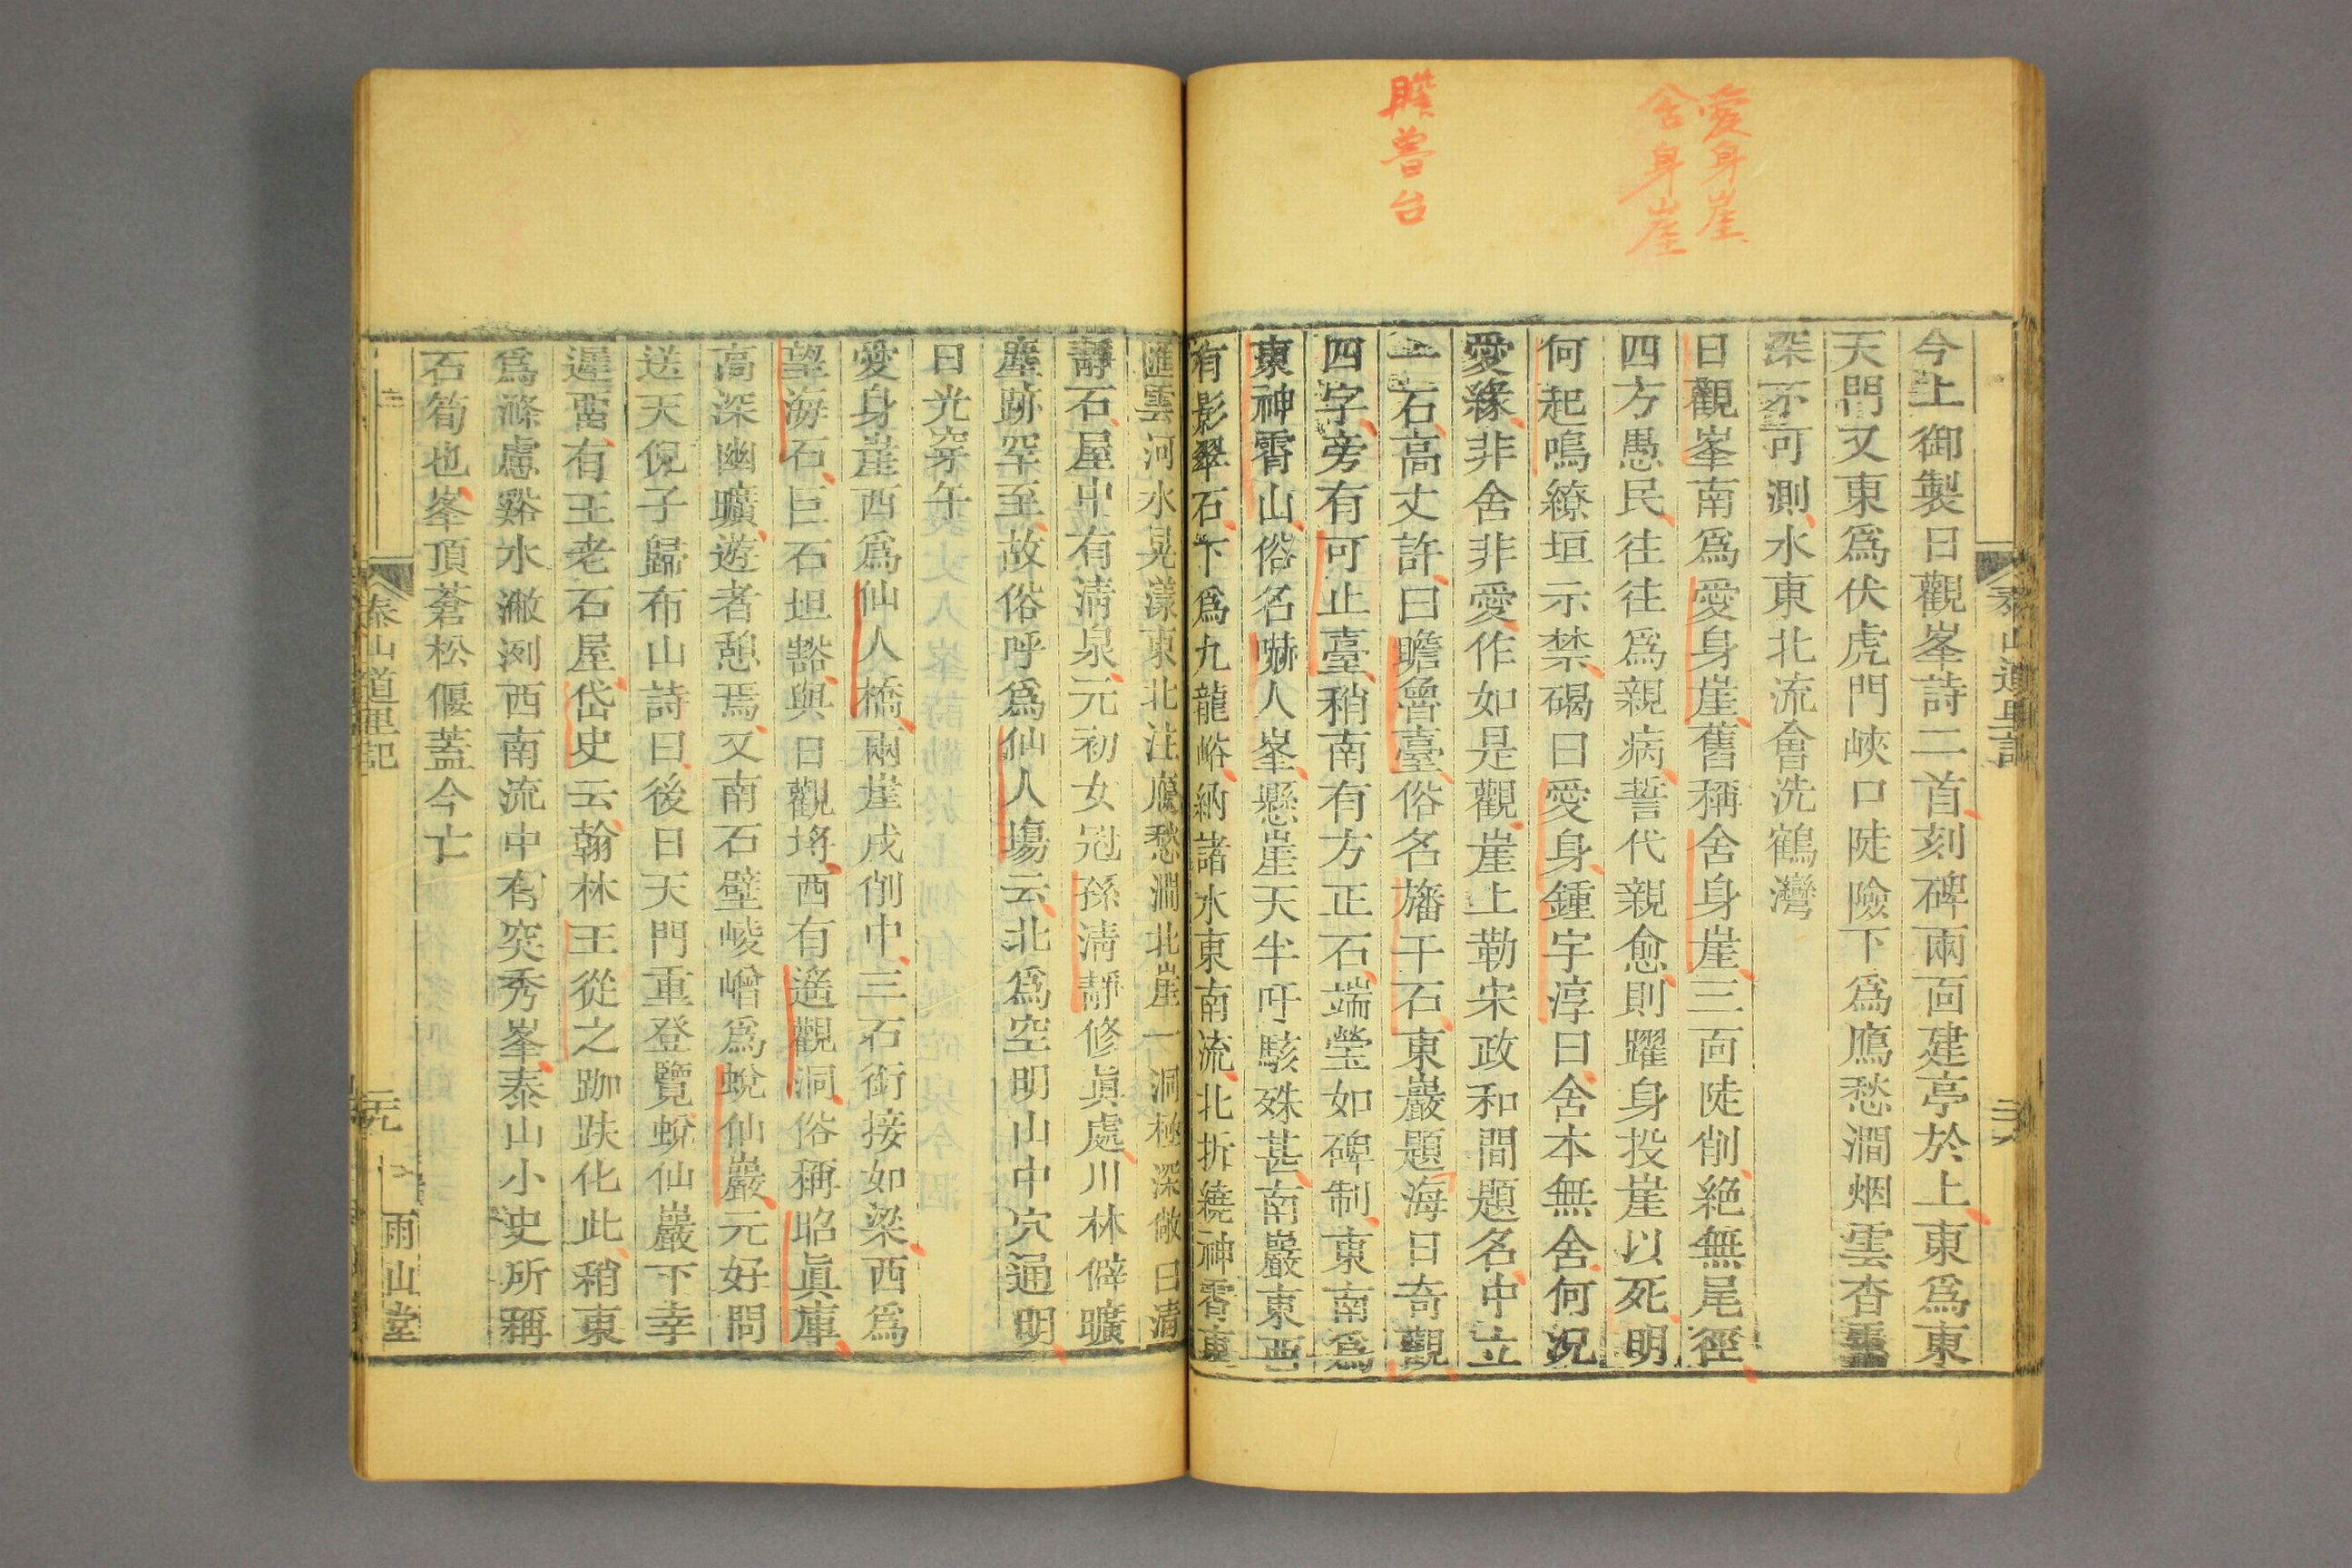 愛身崖
舍身崖
瞻魯台
泰山道里記
今上御製日觀峯詩二首刻碑兩面建亭於上東爲東
天門又東爲伏虎門峽口陡險下爲鷹愁澗烟雲杳靄
深不可測水東北流會洗鶴灣
日觀峯南爲愛身崖舊稱舍身崖三面陡削絶無尾徑
四方愚民往往爲親病誓代親愈則躍身投崖以死明
何起鳴繚垣示禁碣曰愛身鍾宇淳曰舍本無舍何況
愛緣非舍非愛作如是觀崖上勒宋政和間題名中立
一石高丈許曰瞻魯臺俗名旛干石東巖題海日奇觀
四字旁有可止臺稍南有方正石端瑩如碑制東南爲
東神霄山俗名嚇人峯懸崖天半吁駭殊甚南巖東西
有影翠石下爲九龍峪納諸水東南流北折繞神霄東
匯雲河水晃漾東北注鷹愁澗北崖一洞極深敞曰清
靜石屋中有淸泉元初女冠孫淸靜修眞處川林僻曠
塵跡罕至故俗呼爲仙人塲云北爲空明山中穴通明
日光穿午
愛身崖西爲仙人橋兩崖戌削中三石銜接如梁西爲
望海石巨石坦豁與日觀埒西有遙觀洞俗稱昭眞庫
高深幽曠遊者憩焉又南石壁崚嶒爲蛻仙巖元好問
送天倪子歸布山詩曰後日天門重登覽蛻仙巖下幸
遲畱有王老石屋岱史云翰林王從之跏趺化此稍東
爲滌慮谿水潎洌西南流中有突秀峯泰山小史所稱
石筍也峯頂蒼松偃蓋今亡
泰山道里記
元
雨山堂